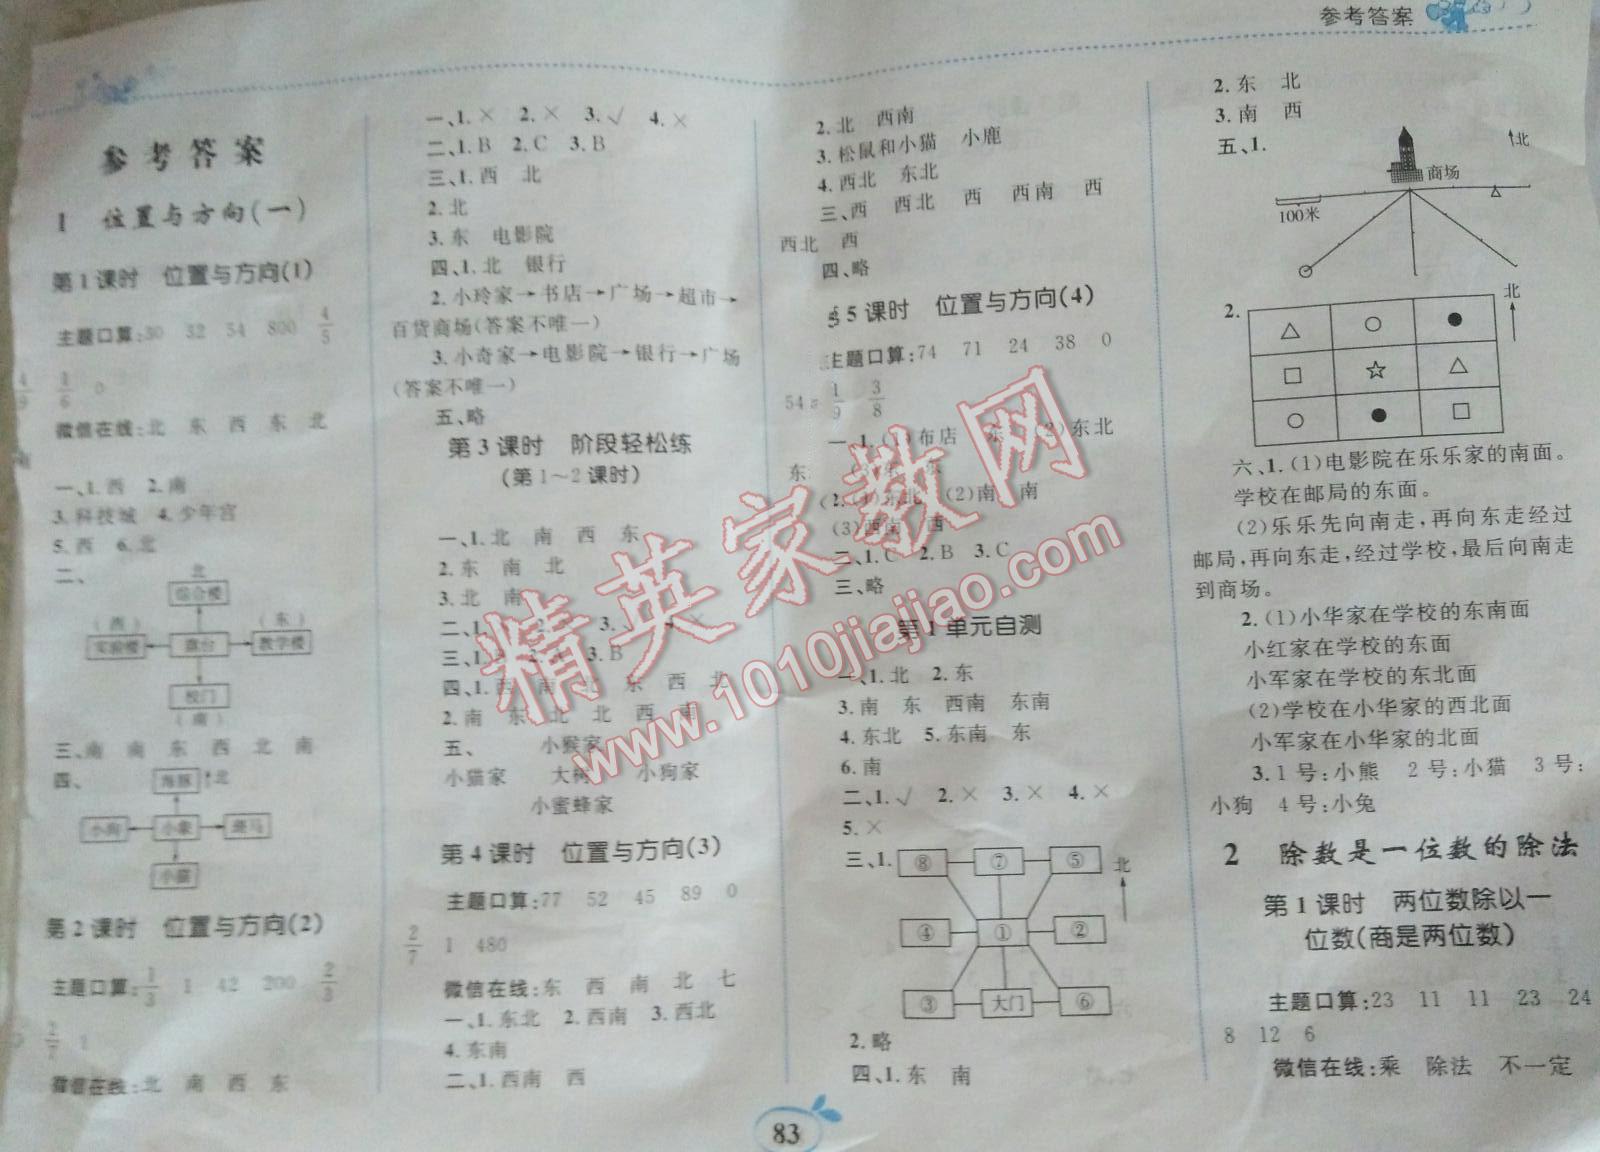 参考答案
参考答案
1 位置与方向(一)
第1课时 位置与方向(1)
主题口算:30 32 54 800 4/5
4/9 1/6 0
微信在线:北 东 西 东 北
一、1.西 2.南
3.科技城 4.少年宫
5.西 6.北
二、
北
综合楼
(西) (东)
实验楼 露台 教学楼
校门
(南)
三、南 南 东 西 北 南
四、
海豚 北
小狗 小象 斑马
小猫
第2课时 位置与方向(2)
主题口算:1/3 1 42 200 2/3
2/7 1
微信在线:北 南 西 东
一、1.× 2.× 3.√ 4.×
二、1.B 2.C 3.B
三、1.西 北
2.北
3.东 电影院
四、1.北 银行
2.小玲家→书店→广场→超市→
百货商场(答案不唯一)
3.小奇家→电影院→银行→广场
(答案不唯一)
五、略
第3课时 阶段轻松练
(第1~2课时)
一、1.北 南 西 东
2.东 南 北
3.北 南
二、1. 3.√ 4.×
三、1. 3.B
四、1.西 南 北 东 西 北
2.南 东 北 北 西 南
五、 小猴家
小猫家 大树 小狗家
小蜜蜂家
第4课时 位置与方向(3)
主题口算:77 52 45 89 0
2/7 1 480
微信在线:东 西 南 北 七
一、1.东北 2.西南 3.西北
4.东南
二、1.西南 西
2.北 西南
3.松鼠和小猫 小鹿
4.西北 东北
三、西 西北 西 西南 西
西北 西
四、略
第5课时 位置与方向(4)
主题口算:74 71 24 38 0
54 1/9 3/8
一、1.(1)布店 东 (2)东北
东 (3)东 东
2.(1)东北 (2)南 南
(3)西南 西
二、1.C 2.B 3.C
三、略
第1单元自测
一、1.北 2.东
3.南 东 西南 东南
4.东北 5.东南 东
6.南
二、1.√ 2.× 3.× 4.×
5.×
三、1.
⑧ ⑦ ⑤ 北
④ ① ②
③ 大门 ⑥
2.略
四、1.东 南
2.东 北
3.南 西
五、1.
北
商场
100米
2.
北
六、1.(1)电影院在乐乐家的南面。
学校在邮局的东面。
(2)乐乐先向南走,再向东走经过
邮局,再向东走,经过学校,最后向南走
到商场。
2.(1)小华家在学校的东南面
小红家在学校的东面
小军家在学校的东北面
(2)学校在小华家的西北面
小军家在小华家的北面
3.1号:小熊 2号:小猫 3号:
小狗 4号:小兔
2 除数是一位数的除法
第1课时 两位数除以一
位数(商是两位数)
主题口算:23 11 11 23 24
8 12 6
微信在线:乘 除法 不一定
83
精英家教网
www.1010jiajiao.com